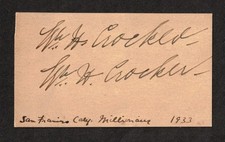 Wm H. Crocker
Wm H. Crocker
San Francisco Millionaire 1933